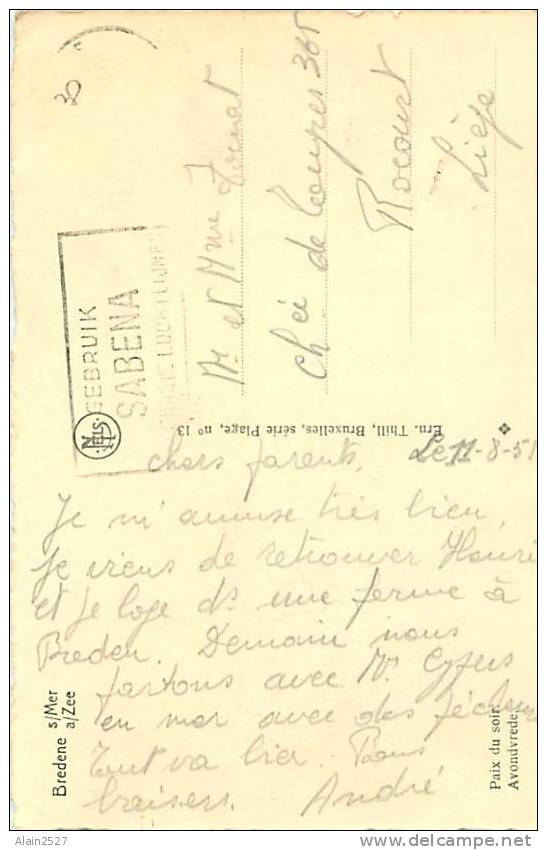 30
GEBRUIK
SABENA
LUCHTLIJNEN
NELS
Mr et Mme
Chée de Tongres 365
Rocourt
Liège
Ern. Thill, Bruxelles, série Plage, nº 13
Le 11-8-51
Chers parents,
Je m'amuse très bien,
je viens de retrouver Henri
et je loge ds une ferme à
Breden. Demain nous
partons avec Mr.
en mer avec des pêcheurs
Tout va bien. Bons
baisers. André
Bredene s/Mer
a/Zee
Paix du soir.
Avondvrede.
Alain2527
http://www.delcampe.net